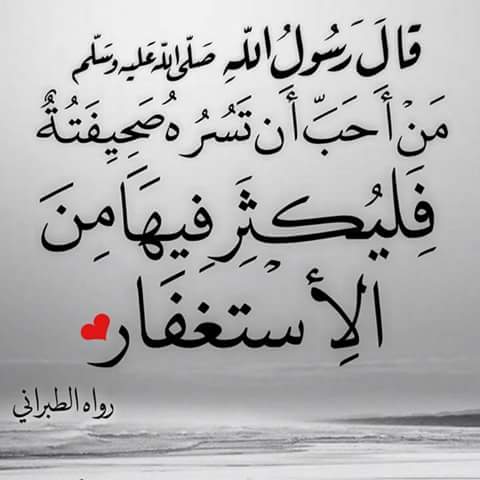 قَالَ رَسُولُ اللّهِ صَلّى اللّه عَليه وسَلّم
مَنْ أَحَبَّ أَن تَسُرُه صَحِيِفَتُهُ
فَليُكثِرِ فِيهَا مِنَ
الاِسْتغفَار
رواه الطبراني